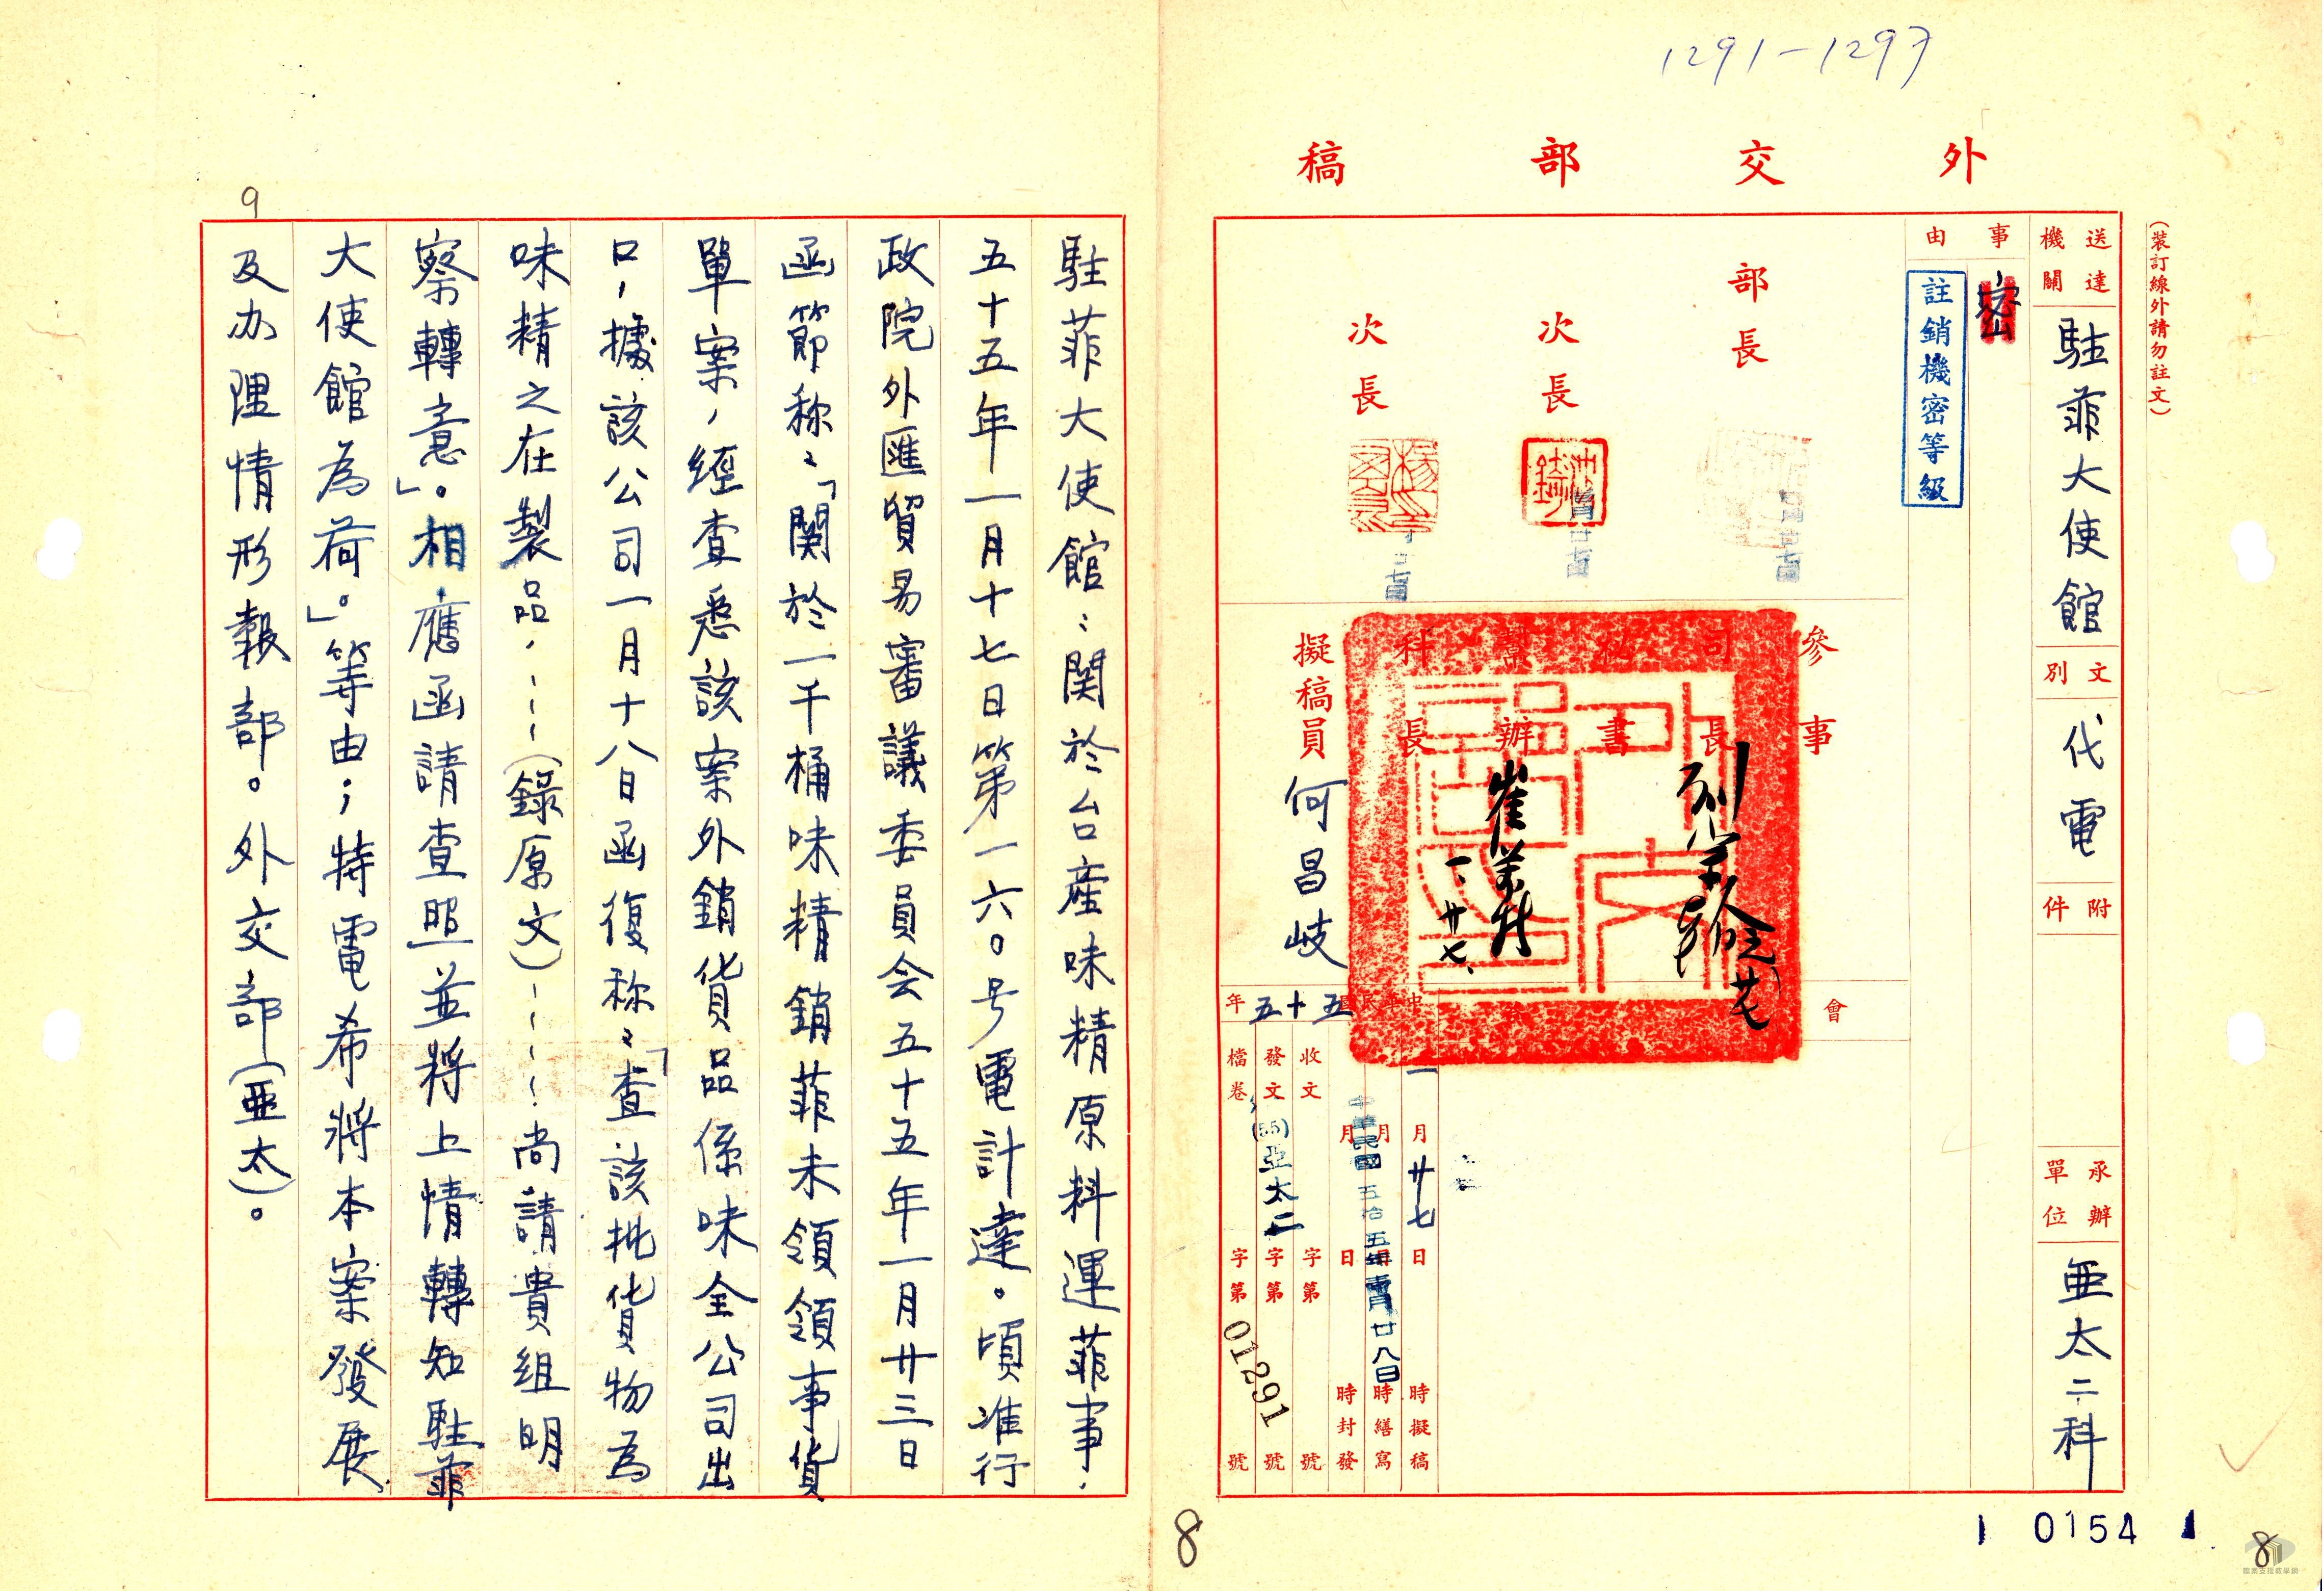 1291-1297
外交部稿
(裝訂線外請勿註文)
送達機關
駐菲大使館
文別
代電
附件
承辦單位
亜太二科
事由
密
註銷機密等級
部長
次長
次長
參事
司長
秘書
幫辦
科長
擬稿員
何昌岐
崔
一、廿七、
會
中華民國五十五年
一月廿七日時擬稿
月日時繕寫
月日時封發
中華民國五拾五年壹月廿八日
收文字第號
發文(55)亞太二字第01291號
檔卷字第號
駐菲大使館:関於台產味精原料運菲事.
五十五年一月十七日第一六0号電計達。頃准行
政院外匯貿易審議委員会五十五年一月廿三日
函節称:「関於一千桶味精銷菲未領領事貨
單案,經查悉該案外銷貨品係味全公司出
口,據該公司一月十八日函復称:「查該批貨物為
味精之在製品,----(錄原文)----尚請貴組明
察轉意」。相應函請查照並將上情轉知駐菲
大使館為荷。」等由;特電希將本案發展
及办理情形報部。外交部(亜太)。
9
8
1 0154 1
8
國家文援教學網